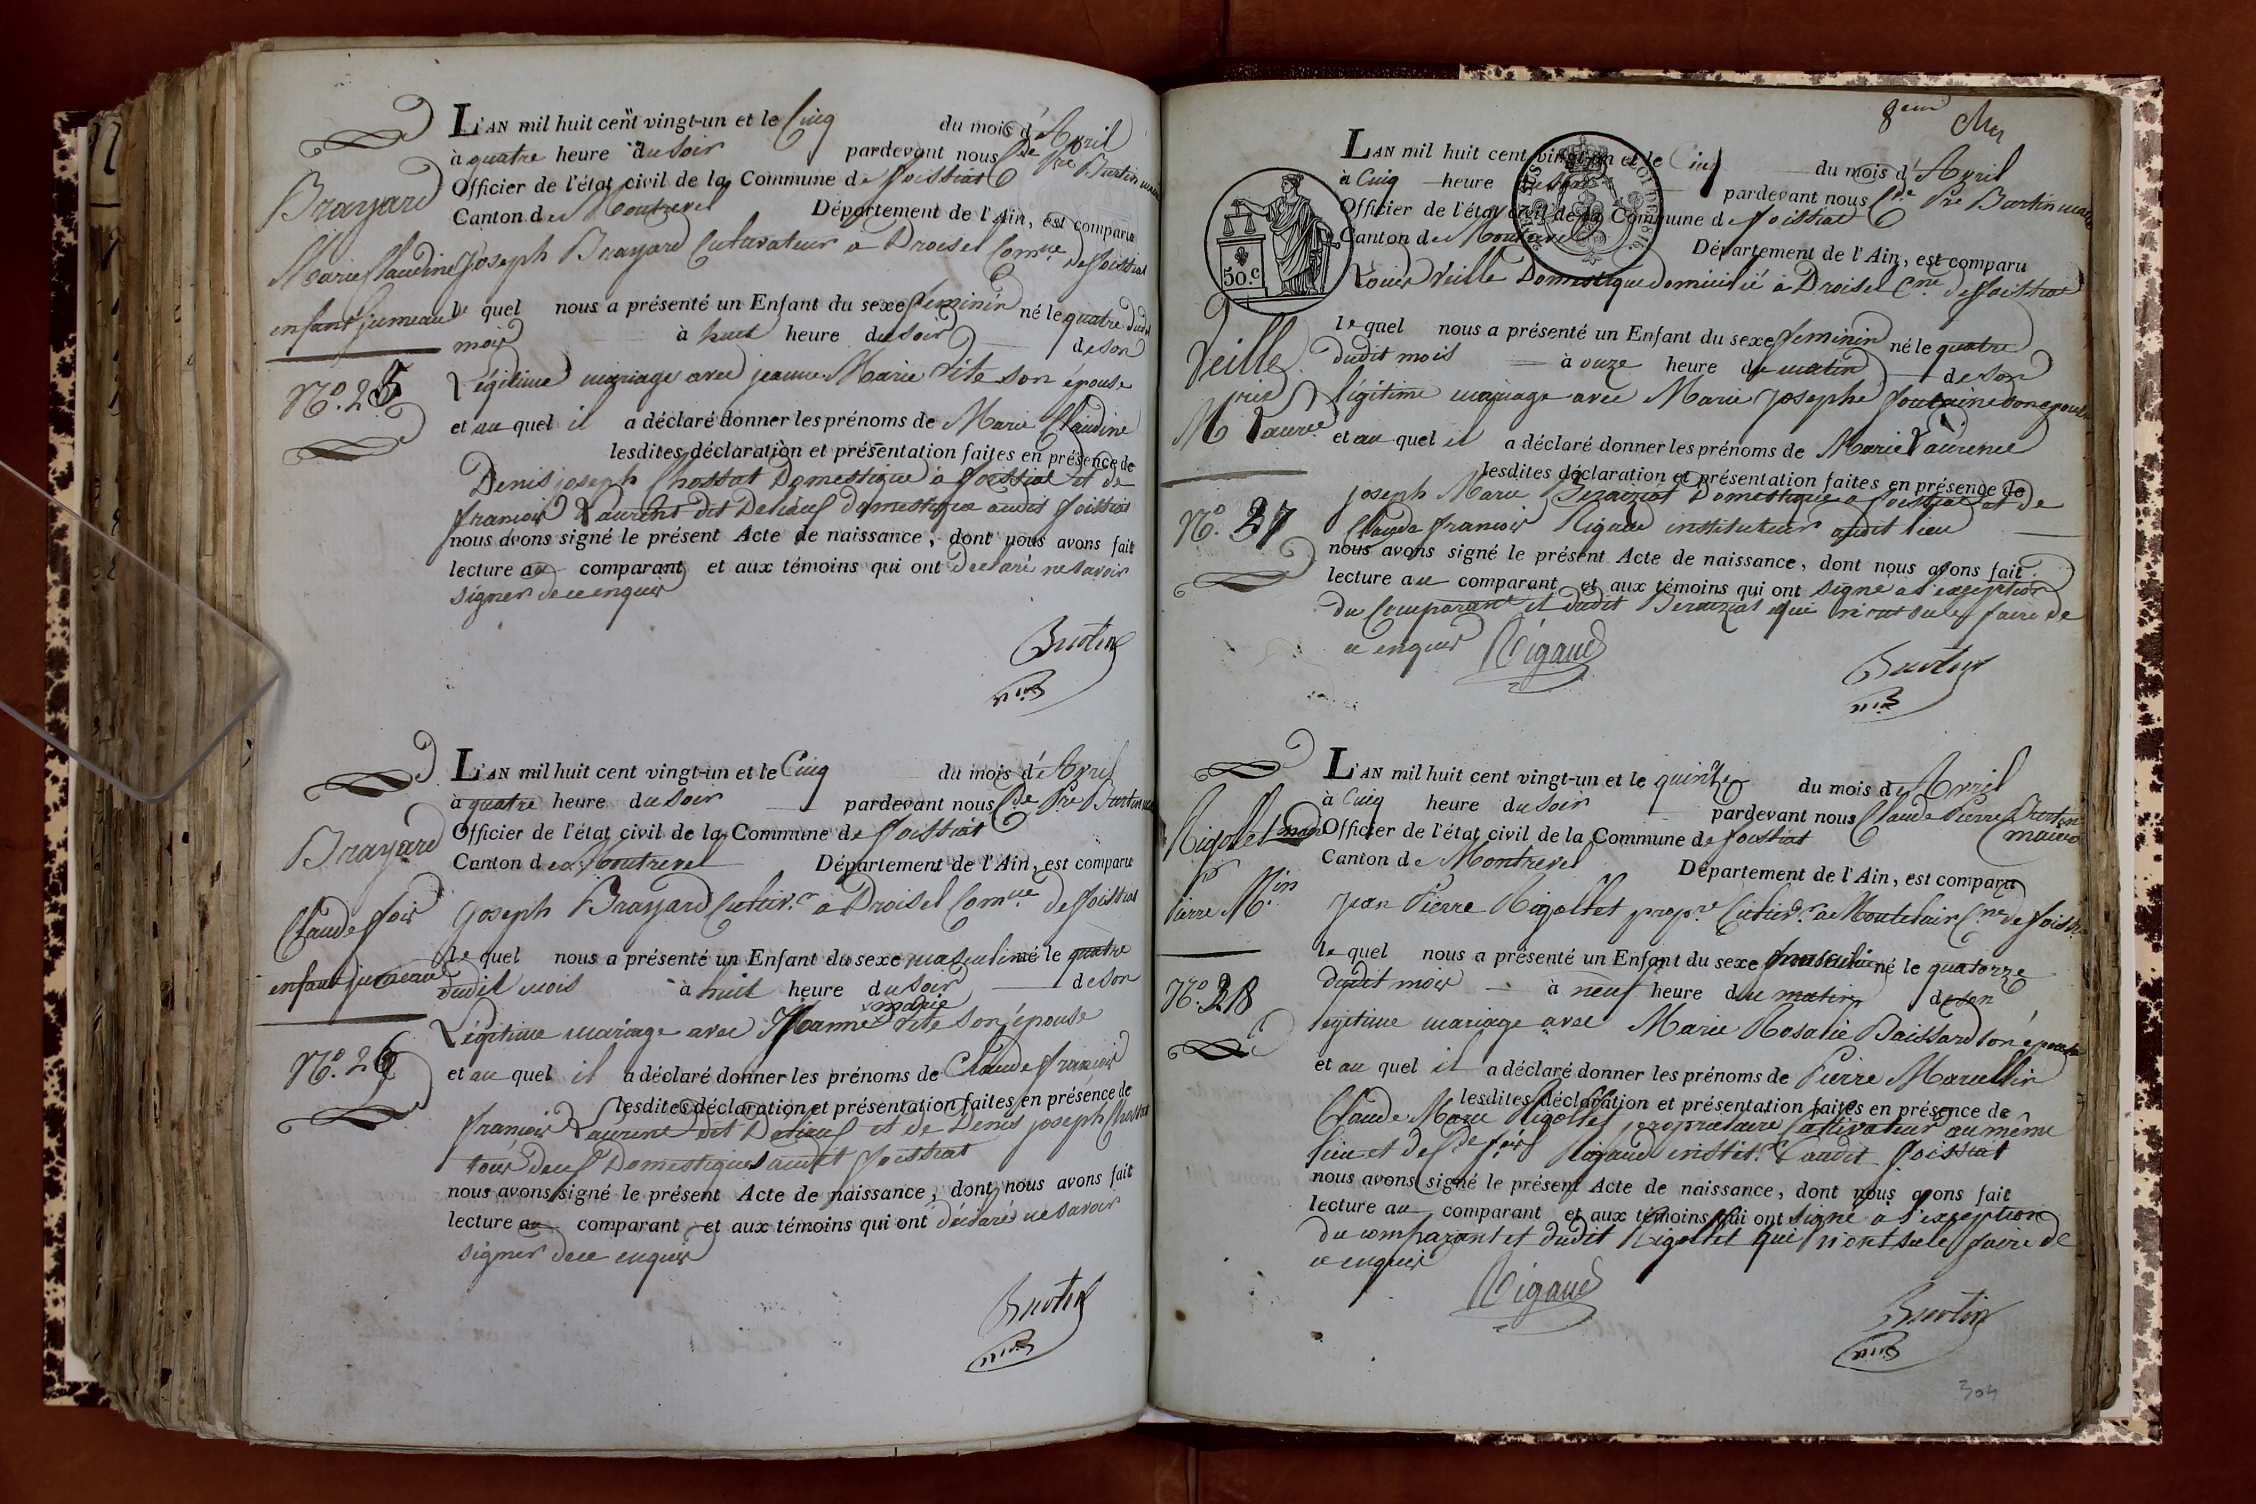 L'AN mil huit cent vingt-un et le Cinq du mois d'Avril
à quatre heure du soir pardevant nous Cde Pre Burtin maire
Officier de l'état civil de la Commune de foissiat
Canton de Montrevel Département de l'Ain, est comparu
Brayard
Marie Claudine
enfant jumeau
N.º 25
Joseph Brayard Cultivateur a Droisel Comne de foissiat
le quel nous a présenté un Enfant du sexe feminin né le quatre dudit
mois à huit heure du soir de son
Légitime mariage avec jeanne Marie Vite son épouse
et au quel il a déclaré donner les prénoms de Marie Claudine
lesdites déclaration et présentation faites en présence de
Denis joseph Chossat Domestique à foissiat et de
francois Laurent dit Delieuf domestique audit foissiat
nous avons signé le présent Acte de naissance, dont nous avons fait
lecture au comparant et aux témoins qui ont declaré ne savoir
signer de ce enquis
Burtin
L'AN mil huit cent vingt-un et le Cinq du mois d'Avril
à quatre heure du soir pardevant nous Cde Pre Burtin
Officier de l'état civil de la Commune de foissiat
Canton de Montrevel Département de l'Ain, est comparu
Brayard
Claude fois
enfant jumeau
N.º 26
joseph Brayard Cultiv.r a Droisel Comne de foissiat
le quel nous a présenté un Enfant du sexe masculin né le quatre
dudit mois à huit heure du soir de son
marie
Légitime mariage avec Jeanne Vite son épouse
et au quel il a déclaré donner les prénoms de Claude francois
lesdites déclaration et présentation faites en présence de
francois Laurent dit Delieuf et de Denis joseph Chossat
tous deux Domestiques audit foissiat
nous avons signé le présent Acte de naissance, dont nous avons fait
lecture au comparant et aux témoins qui ont déclaré ne savoir
signer de ce enquis
Burtin
8eme
L'AN mil huit cent vingt-un et le Cinq du mois d'Avril
à Cinq heure du soir pardevant nous Cde Pre Burtin maire
Officier de l'état civil de la Commune de foissiat
Canton de Montrevel Département de l'Ain, est comparu
50.c
1816
Veille
M Laurce
N.º 27
Louis Veille Domestique domicilié à Droisel Cne de foissiat
le quel nous a présenté un Enfant du sexe feminin né le quatre
dudit mois à onze heure du matin de son
légitime mariage avec Marie Josephe fontaine son epouse
et au quel il a déclaré donner les prénoms de Marie Laurence
lesdites déclaration et présentation faites en présence de
joseph Marie Beraiziat Domestique a foissiat et de
Claude francois Rigaud instituteur audit lieu
nous avons signé le présent Acte de naissance, dont nous avons fait
lecture au comparant et aux témoins qui ont signé a l'exception
du Comparant et dudit Beraiziat qui n'ont su le faire de
ce enquis Rigaud
Burtin
L'AN mil huit cent vingt-un et le quinze du mois d'Avril
à Cinq heure du soir pardevant nous Claude Pierre Burtin
maire
Officier de l'état civil de la Commune de foissiat
Canton de Montrevel Département de l'Ain, est comparu
Rigollet
Pierre M.in
N.º 28
Jean Pierre Rigollet propre Cultiv.r a Montefain Cne de foissiat
le quel nous a présenté un Enfant du sexe masculin né le quatorze
dudit mois à neuf heure du matin de son
legitime mariage avec Marie Rosalie Baissard son épouse
et au quel il a déclaré donner les prénoms de Pierre Marcellin
lesdites déclaration et présentation faites en présence de
Claude Marie Rigollet propriétaire Cultivateur au même
lieu et de Cde fois Rigaud instit.r audit foissiat
nous avons signé le présent Acte de naissance, dont nous avons fait
lecture au comparant et aux témoins qui ont signé à l'exception
du comparant et dudit Rigollet qui n'ont su le faire de
ce enquis
Rigaud
Burtin
304